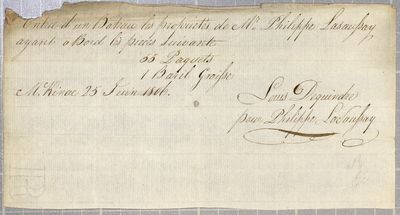 Entrée d'un Bateau les propriétés de Mr. Philippe Lasaussay
ayant a Bord les pieces Suivante
55 Paquets
1 Baril Graisse
McKinac 25 Juin 1806.
Louis Dequindre
pour Philippe LaSaussay